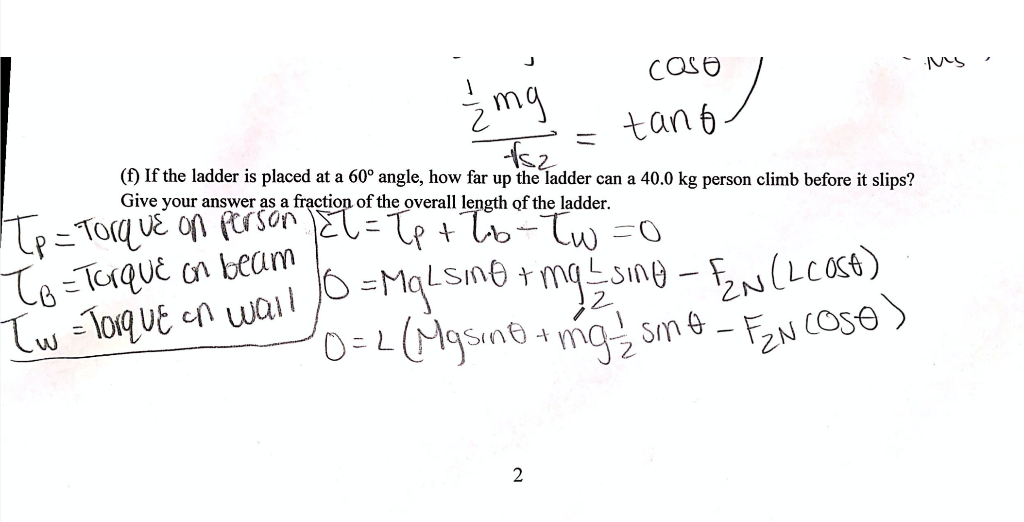 cosθ
½ mg / fs2 = tanθ
(f) If the ladder is placed at a 60° angle, how far up the ladder can a 40.0 kg person climb before it slips?
Give your answer as a fraction of the overall length of the ladder.
τp = Torque on person
τB = Torque on beam
τw = Torque on wall
Στ = τp + τb - τw = 0
0 = MgLsinθ + mg L/2 sinθ - F2N(Lcosθ)
0 = L(Mgsinθ + mg ½ sinθ - F2N cosθ)
2